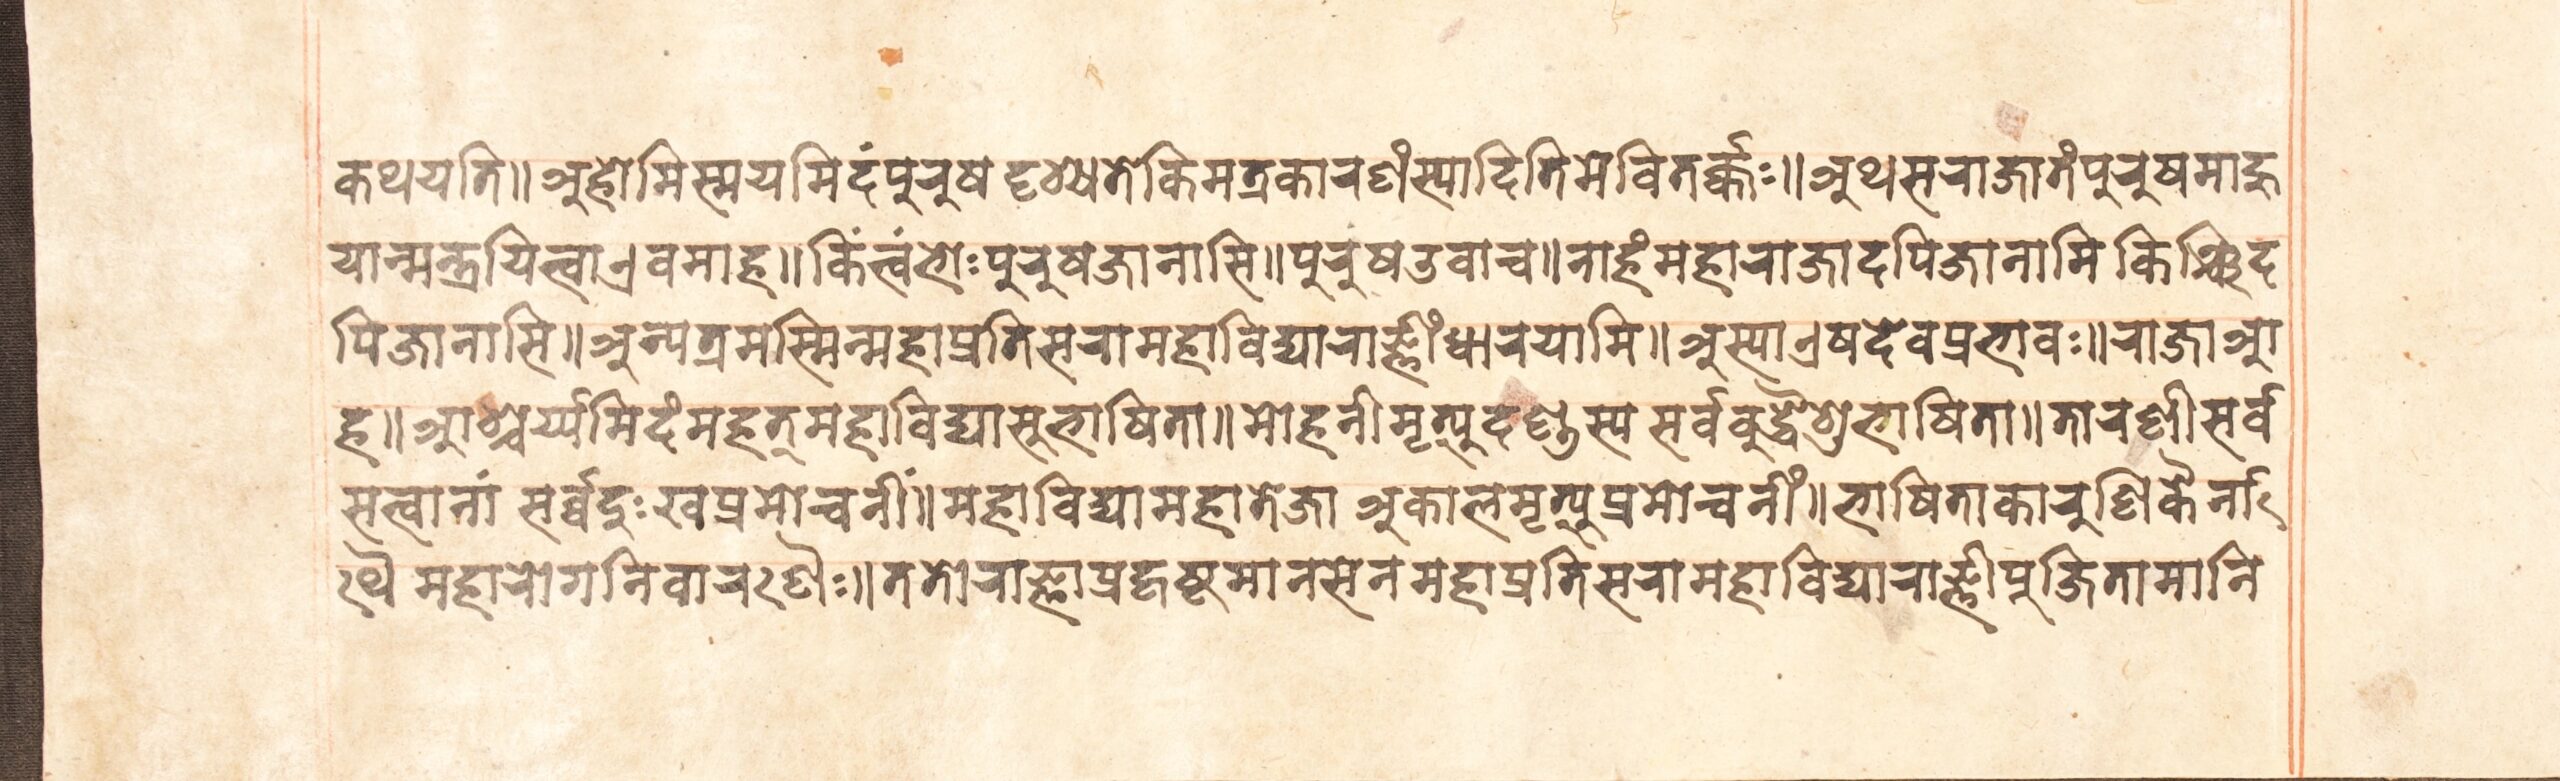 कथयति॥अहोमिस्मयमिदंपुरुषदृश्यतेकिमत्रकारणंस्यादितिमेवितर्क्कः॥अथसराजातंपुरुषमाहु
यान्मन्त्रयित्वाएवमाह॥किंत्वंभोःपुरुषजानासि॥पुरुषउवाच॥नाहंमहाराजादपिजानामि किञ्चिद
पिजानासि॥अन्यत्रमस्मिन्महाप्रतिसरामहाविद्याराज्ञींधारयामि॥अस्याएषदेवप्रभावः॥राजाआ
ह॥आश्चर्य्यमिदंमहत्महाविद्यासुभाषिता॥मोहनीमृत्युदण्डस्य सर्वबुद्धैशुभाषिता॥तारणीसर्व
सत्वानां सर्व्वदुःखप्रमोचनीं॥महाविद्यामहातेजा अकालमृत्युप्रमोचनीं॥भाषिताकारुणिकैर्ना
थै महारोगनिवारणैः॥ततोराज्ञाप्रहृष्टमानसेनमहाप्रतिसरामहाविद्याराज्ञीपुजितामानि